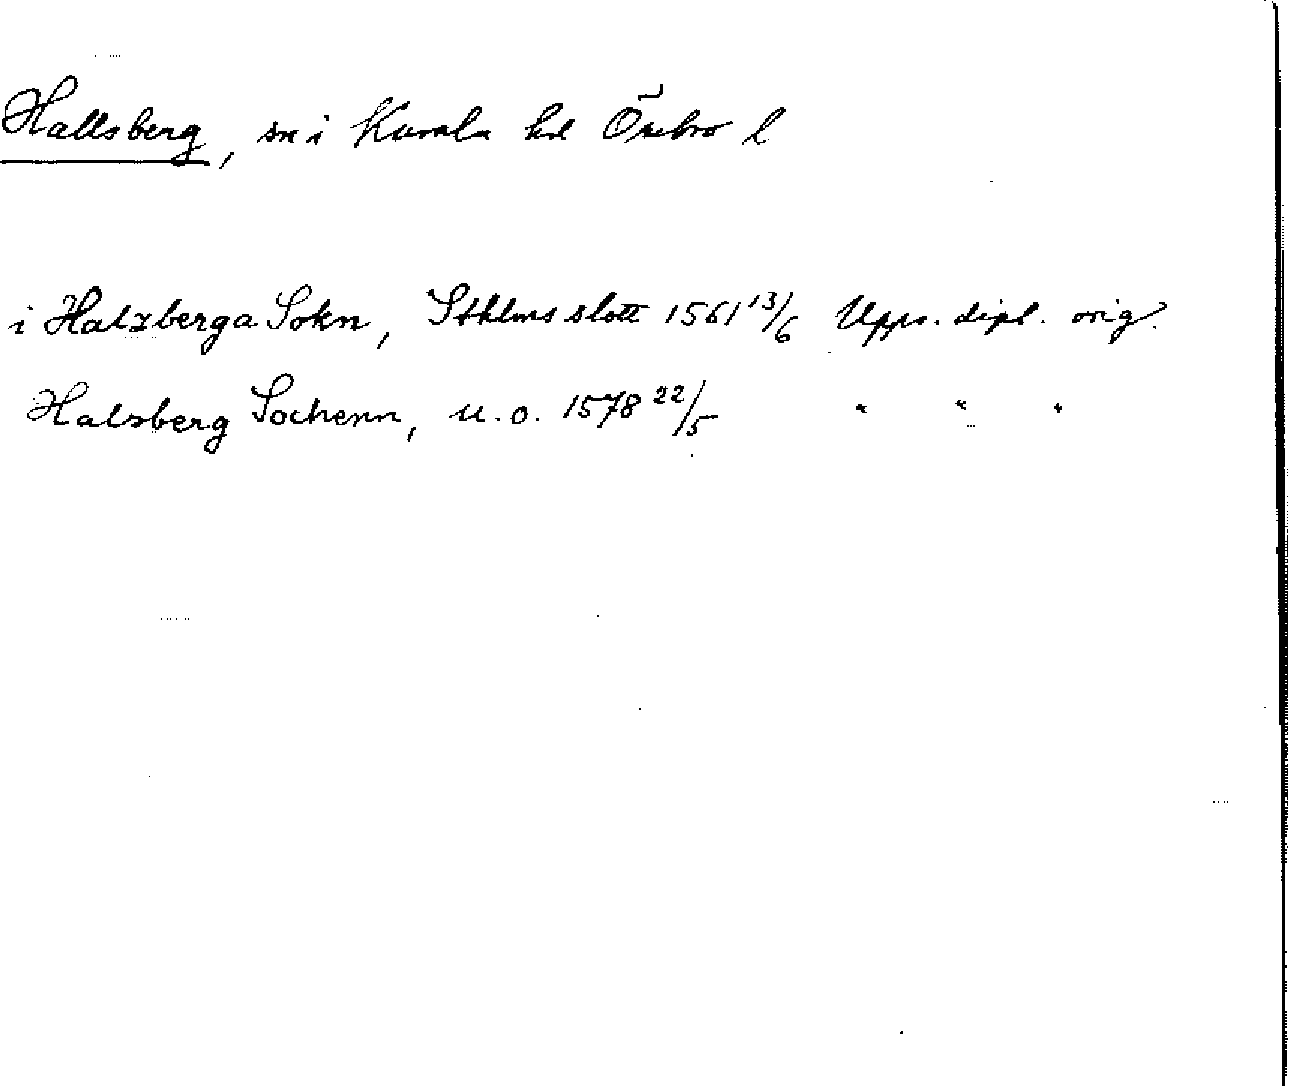 Hallsberg, sn i Kumla hd Örebro l
i Halzberga Sokn, Sthlms slott 1561 13/6 Upps. dipl. orig.
Halzberg Sochenn, u.o. 1578 22/5 " " "